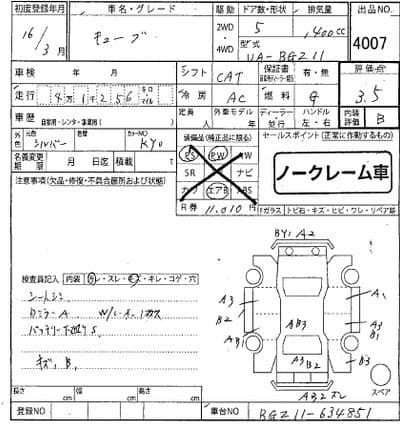 初度登録年月 車名・グレード 駆動 ドア数・形状 排気量 出品NO
16/3月 キューブ 2WD・4WD 5 1,400cc 4007
型式 UA-BGZ11
車検 年 月 シフト CAT 保証書 有・無 評価点
走行 4万1千256 キロ マイル 冷房 AC 燃料 G 3.5
車歴 自家用・レンタ・事業用( ) 定員 人 外車モデル 年 ディーラー 並行 ハンドル 左・右 内装評価 B
外色 元色 シルバー 色替 カラーNO KY0
装備品(正常に限る) セールスポイント(正常に作動するもの)
PS PW AW
名義変更期限 月 日迄 積載 t
SR ナビ
カワ エアB ABS
ノークレーム車
R券 11,010円
注意事項(欠品・修復・不具合箇所および状態)
Fガラス トビ石・キズ・ヒビ・ワレ・リペア跡
BY1 A2
検査員記入 内装 ヨレ・スレ・キズ・キレ・コゲ・穴
A3 B2
A1
AB3
AB1
A3 B1
キズ、B、
A3 B2
B3
AB2
スペア
長さ cm 幅 cm 高さ cm
登録NO 車台NO BGZ11-634851